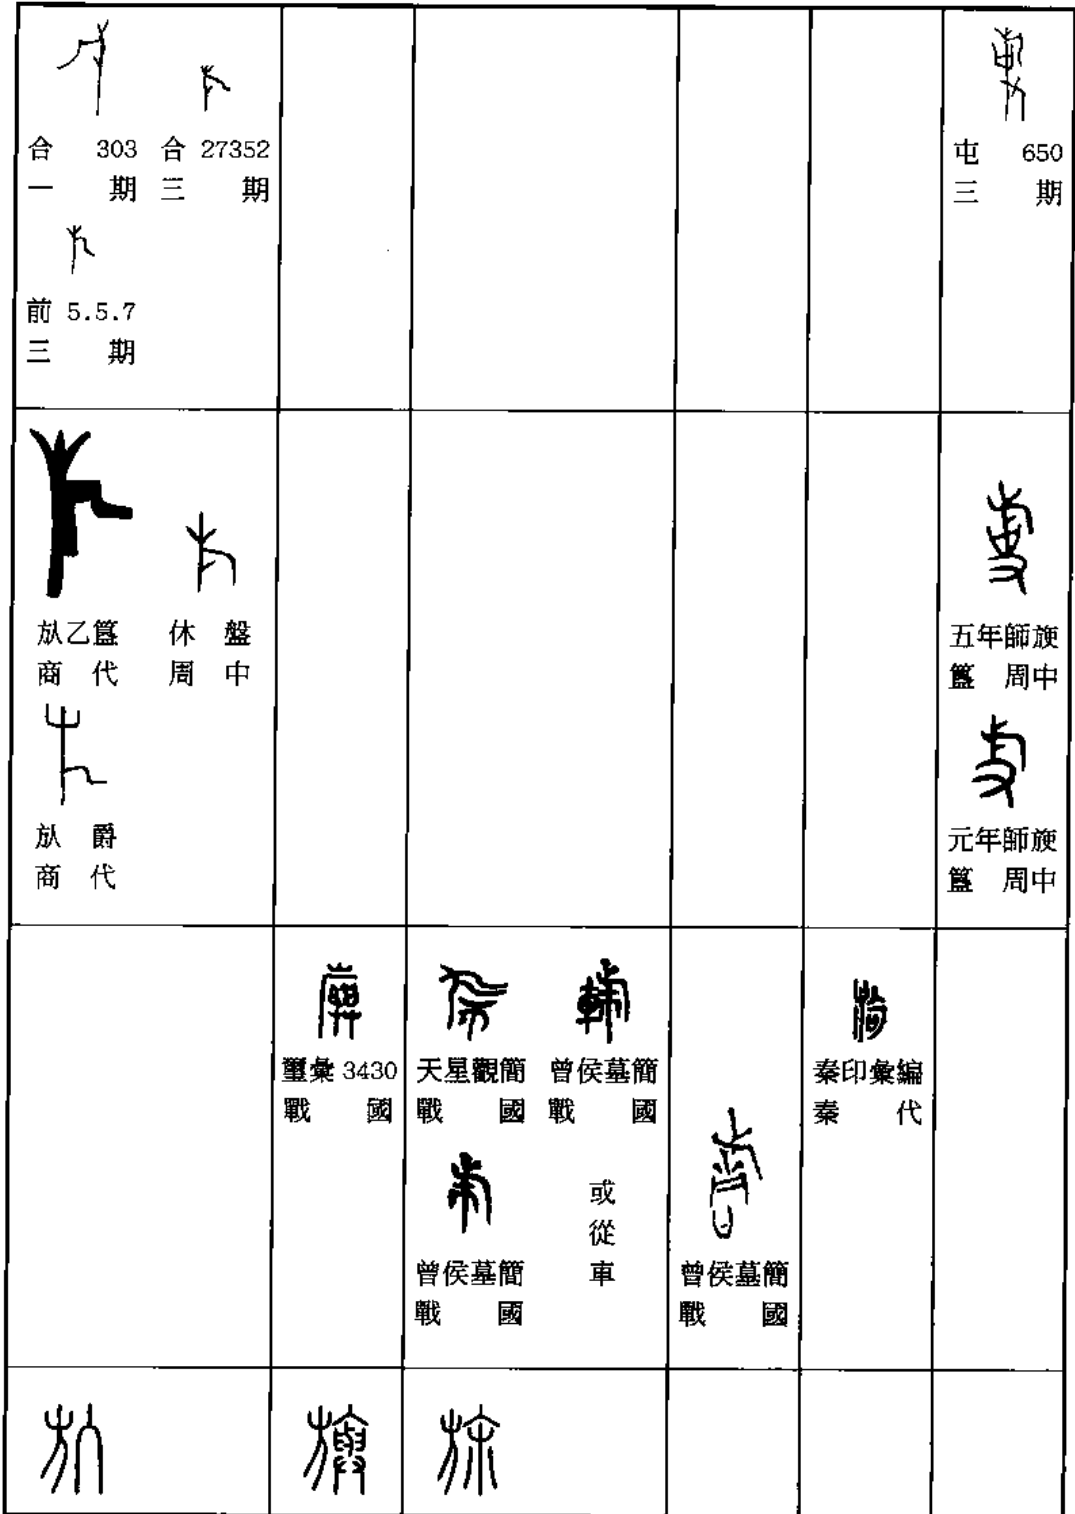 合 303
一期
合 27352
三期
前 5.5.7
三期
屯 650
三期
㫃乙簋
商代
休盤
周中
㫃爵
商代
五年師旋
簋 周中
元年師旋
簋 周中
璽彙 3430
戰國
天星觀簡
戰國
曾侯墓簡
戰國
曾侯墓簡
戰國
或從車
曾侯墓簡
戰國
秦印彙編
秦代